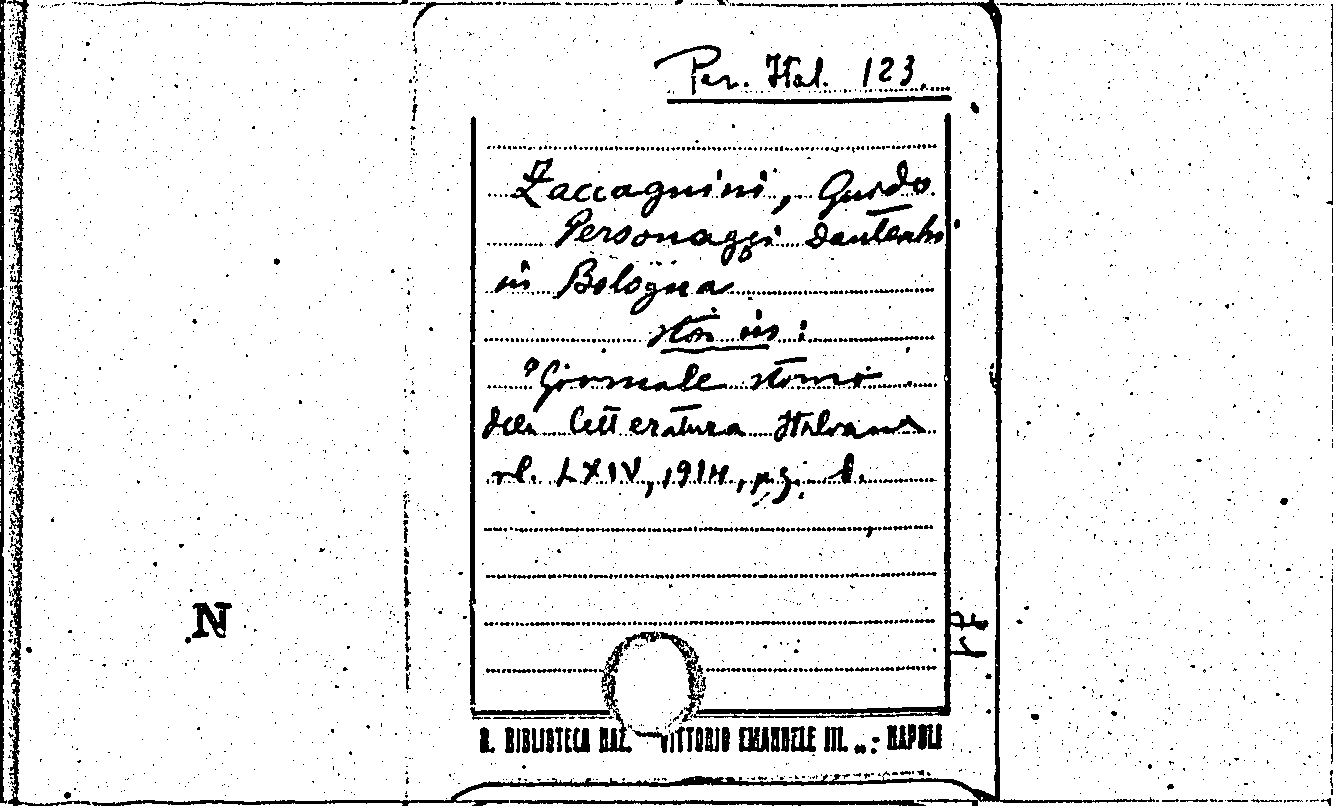 Per. Ital. 123.
Zaccagnini, Guido
Personaggi danteschi
in Bologna
Sta in:
"Giornale storico
della letteratura Italiana
vol. LXIV, 1914, pg. 1.
N
R. BIBLIOTECA NAZ. VITTORIO EMANUELE III. - NAPOLI